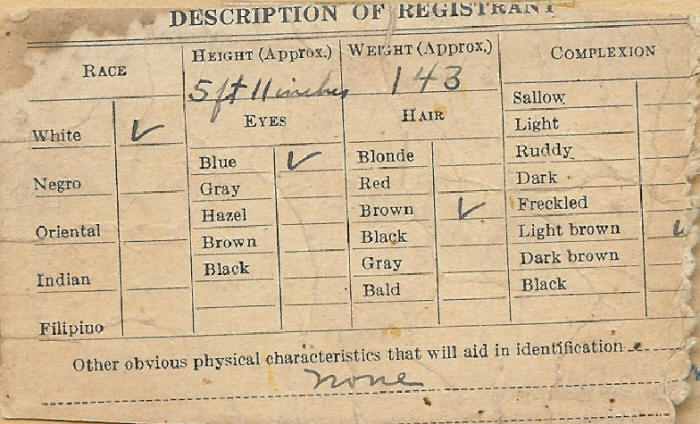 DESCRIPTION OF REGISTRANT
RACE
White ✓
Negro
Oriental
Indian
Filipino
HEIGHT (Approx.)
5 ft 11 inches
EYES
Blue ✓
Gray
Hazel
Brown
Black
WEIGHT (Approx.)
143
HAIR
Blonde
Red
Brown ✓
Black
Gray
Bald
COMPLEXION
Sallow
Light
Ruddy
Dark
Freckled
Light brown ✓
Dark brown
Black
Other obvious physical characteristics that will aid in identification
none